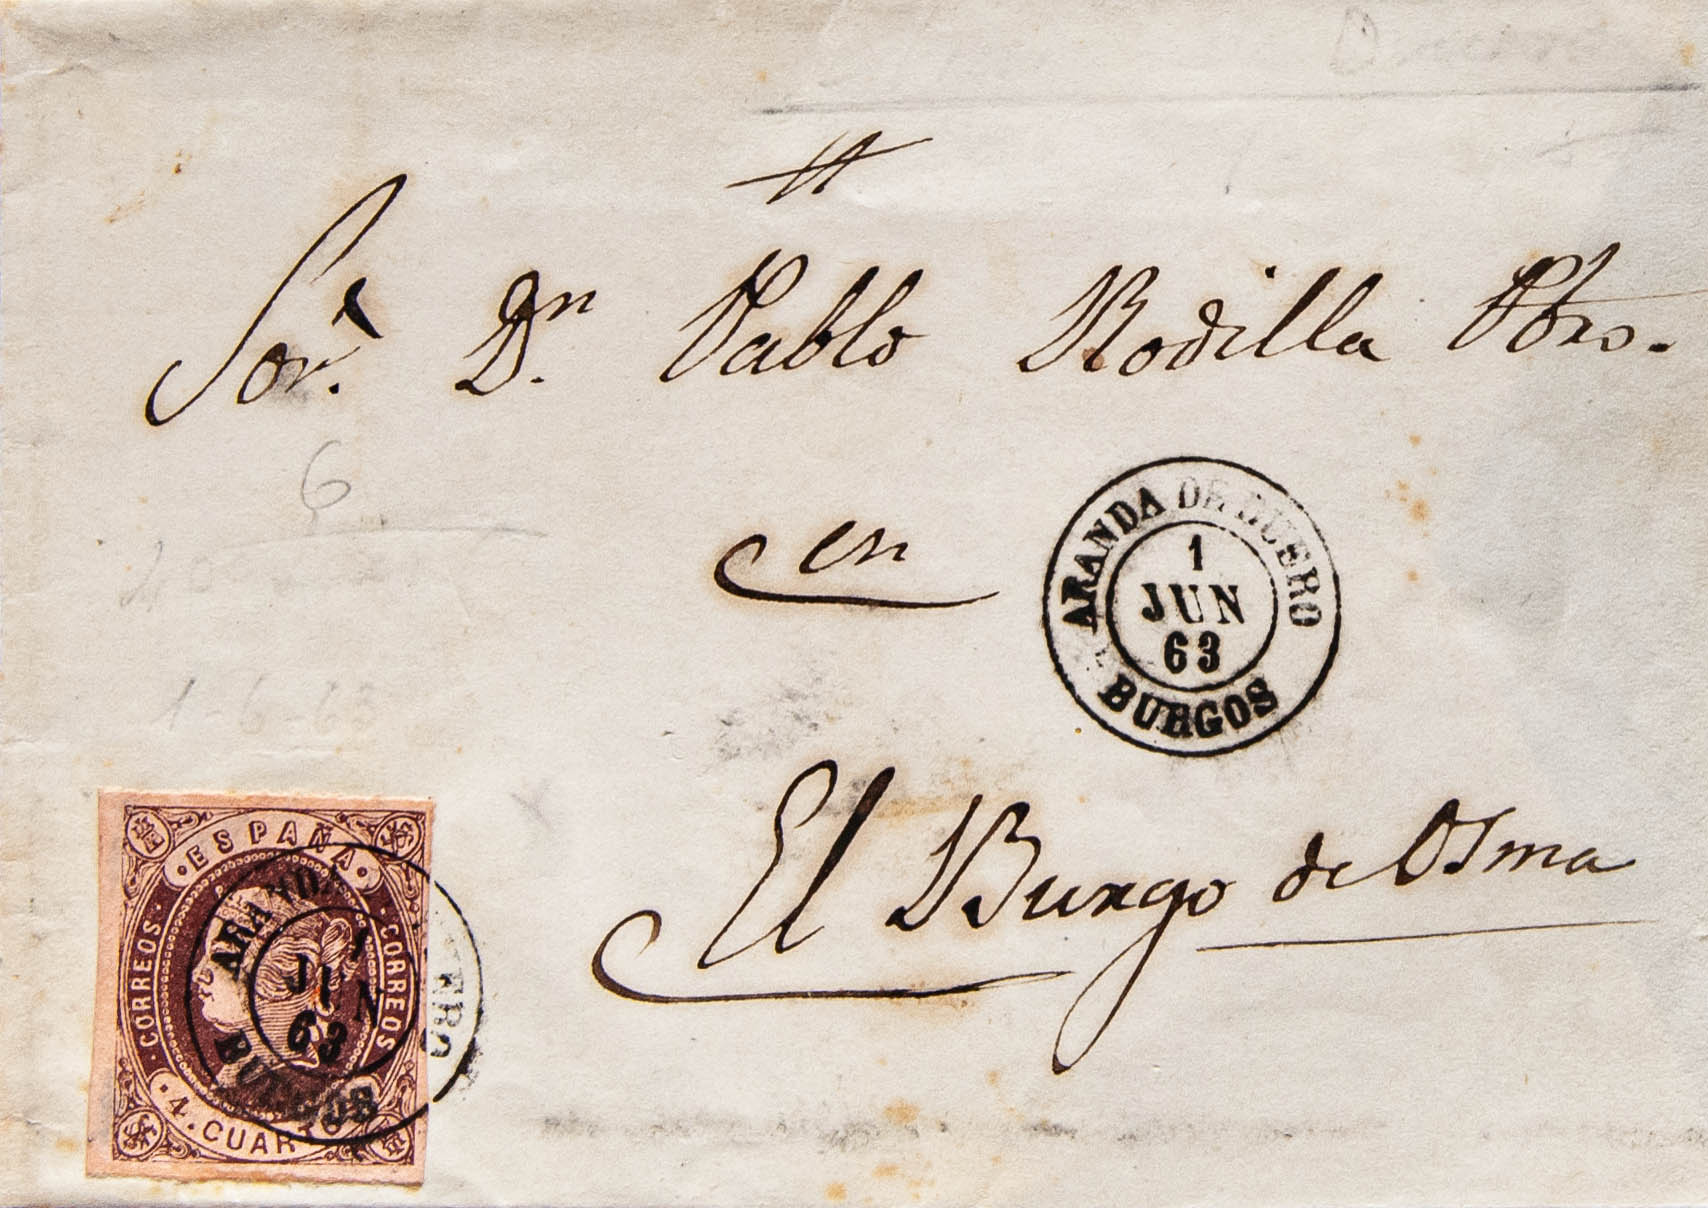 Sor. Dn. Pablo Rodilla Pbro.
6
en
ARANDA DE DUERO
1
JUN
63
BURGOS
1-6-63
El Burgo de Osma
·ESPAÑA·
·CORREOS·
·CORREOS·
·4·CUARTOS
ARANDA DUERO
1
JUN
63
BURGOS